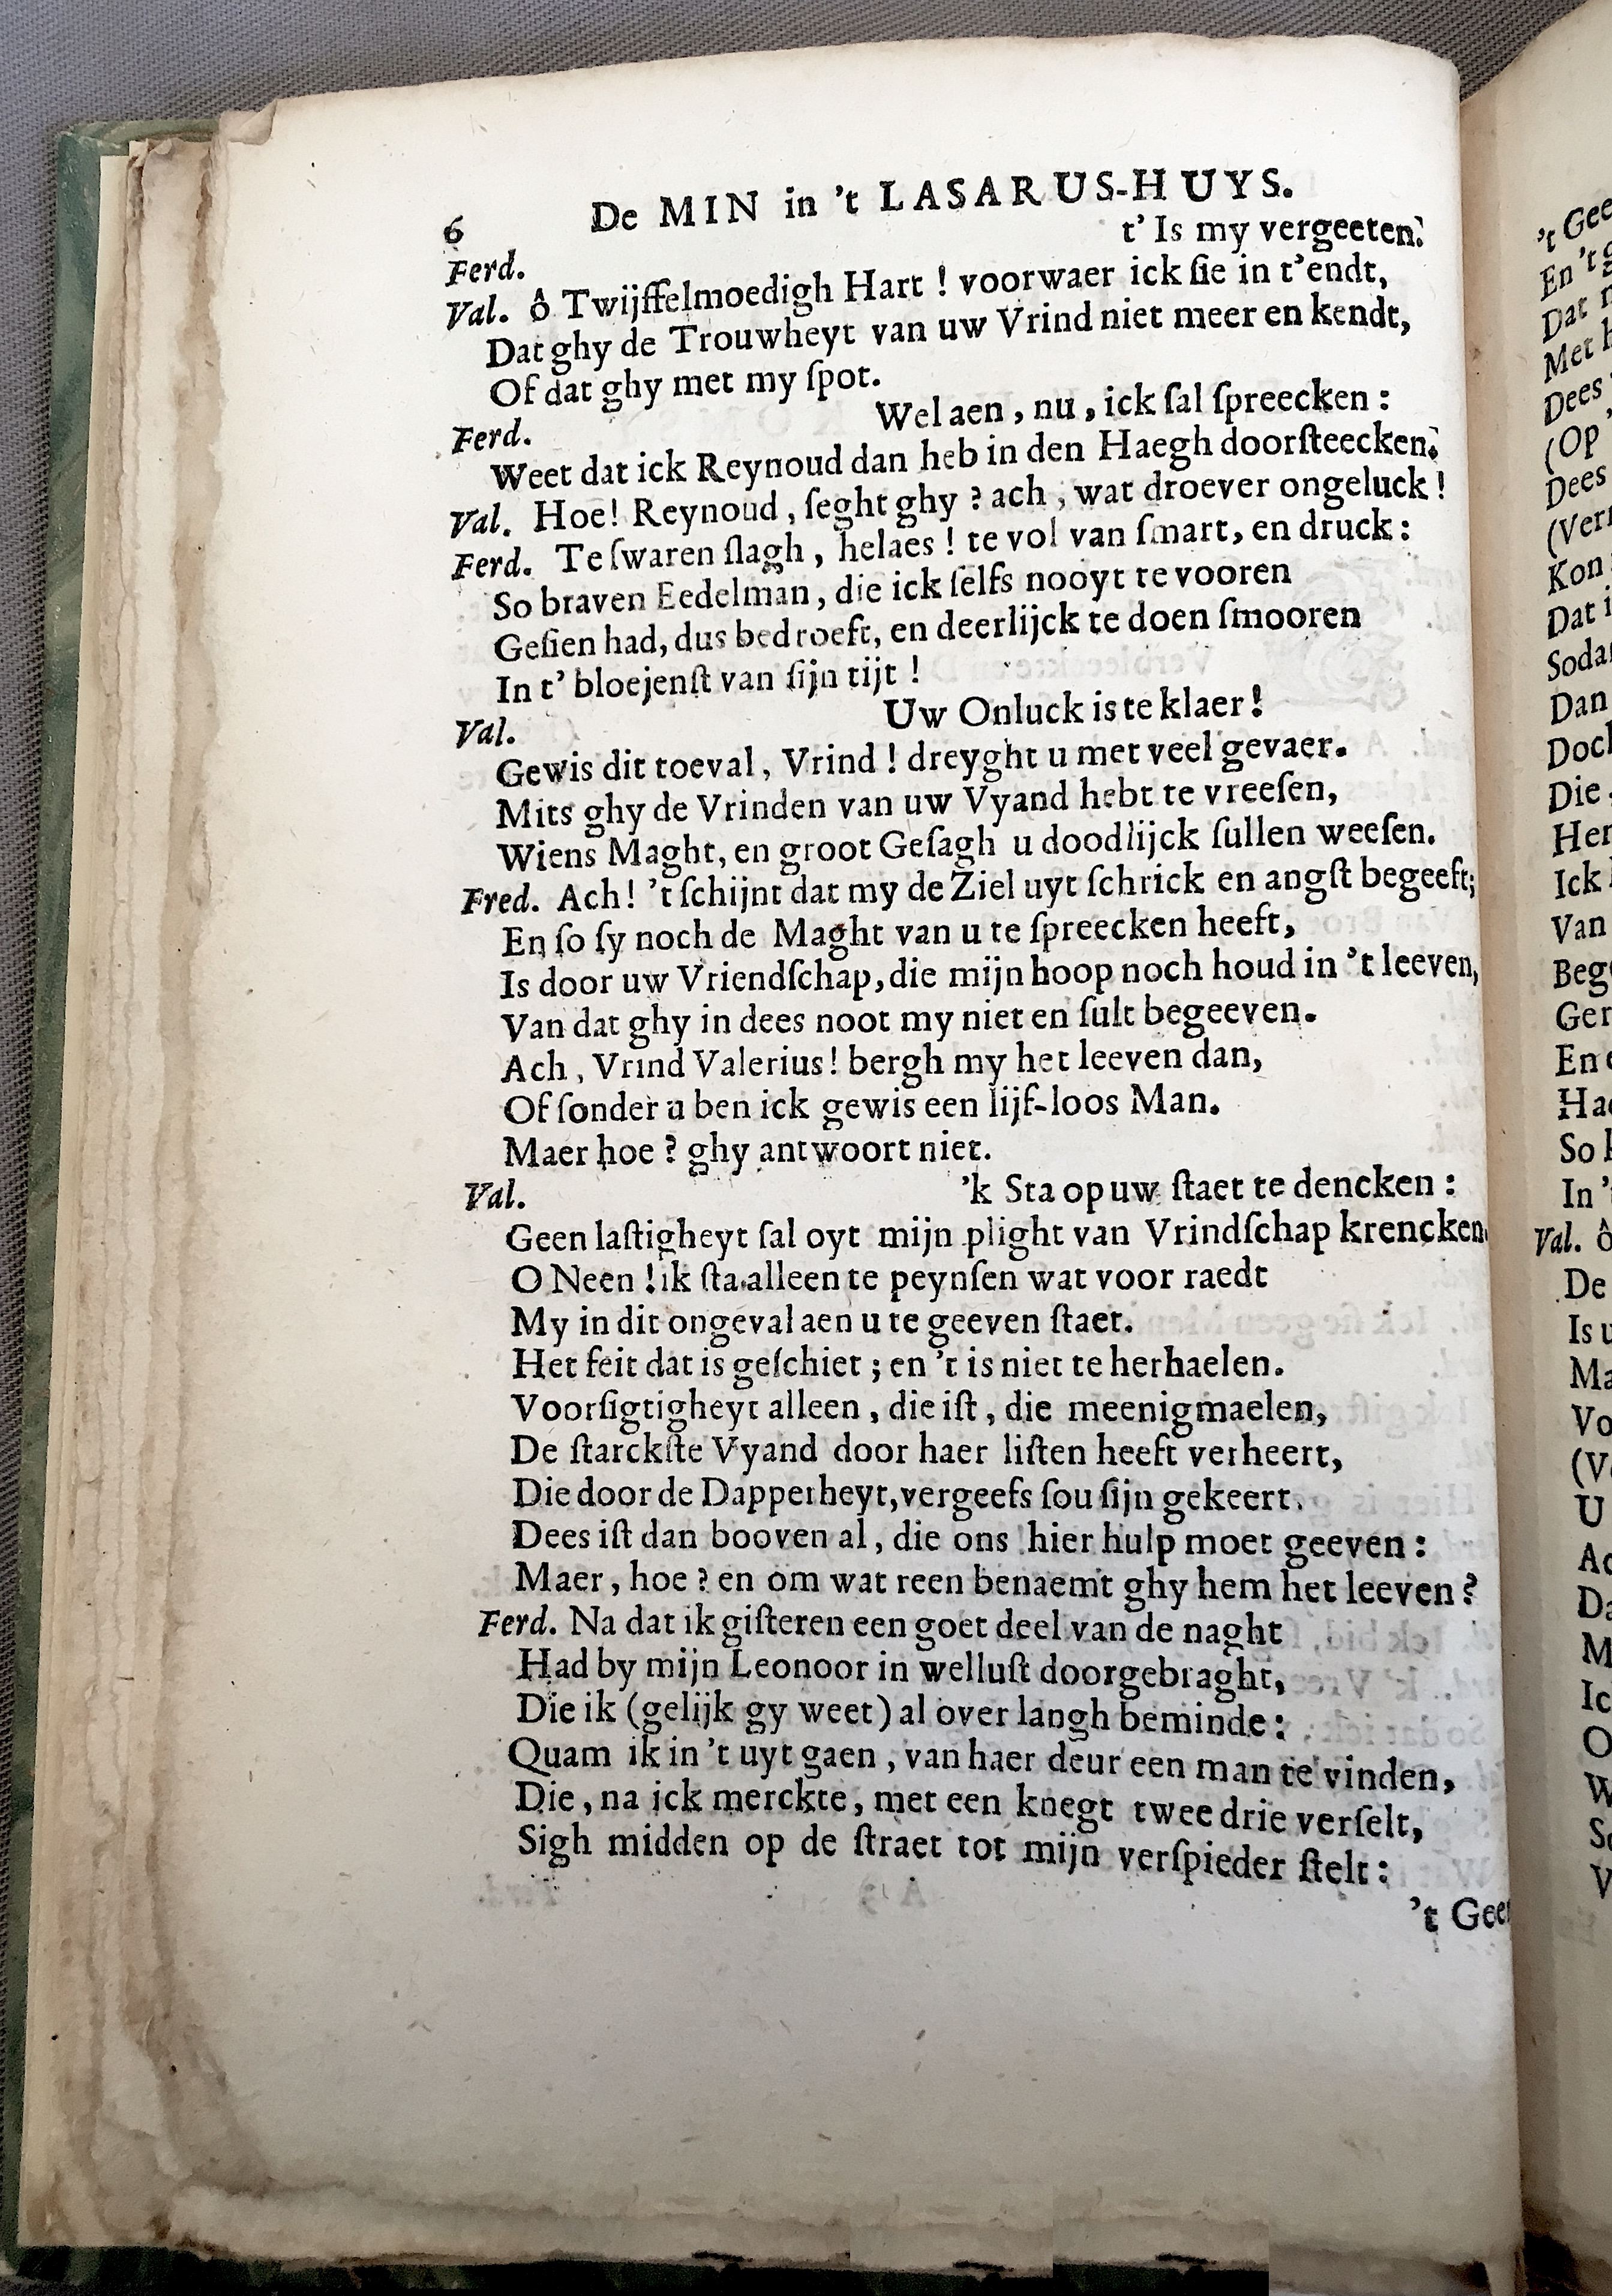 6 De MIN in 't LASARUS-HUYS.
Ferd. t' Is my vergeeten.
Val. ô Twijffelmoedigh Hart ! voorwaer ick ſie in t'endt,
Dat ghy de Trouwheyt van uw Vrind niet meer en kendt,
Of dat ghy met my ſpot.
Ferd. Wel aen, nu, ick ſal ſpreecken :
Weet dat ick Reynoud dan heb in den Haegh doorſteecken.
Val. Hoe! Reynoud, ſeght ghy ? ach, wat droever ongeluck !
Ferd. Te ſwaren ſlagh, helaes ! te vol van ſmart, en druck :
So braven Eedelman, die ick ſelfs nooyt te vooren
Geſien had, dus bedroeft, en deerlijck te doen ſmooren
In t' bloejenſt van ſijn tijt !
Val. Uw Onluck is te klaer !
Gewis dit toeval, Vrind ! dreyght u met veel gevaer.
Mits ghy de Vrinden van uw Vyand hebt te vreeſen,
Wiens Maght, en groot Geſagh u doodlijck ſullen weeſen.
Fred. Ach! 't ſchijnt dat my de Ziel uyt ſchrick en angſt begeeft;
En ſo ſy noch de Maght van u te ſpreecken heeft,
Is door uw Vriendſchap, die mijn hoop noch houd in 't leeven,
Van dat ghy in dees noot my niet en ſult begeeven.
Ach, Vrind Valerius! bergh my het leeven dan,
Of ſonder u ben ick gewis een lijf-loos Man.
Maer hoe ? ghy antwoort niet.
Val. 'k Sta op uw ſtaet te dencken :
Geen laſtigheyt ſal oyt mijn plight van Vrindſchap krencken.
O Neen ! ik ſta alleen te peynſen wat voor raedt
My in dit ongeval aen u te geeven ſtaet.
Het feit dat is geſchiet ; en 't is niet te herhaelen.
Voorſigtigheyt alleen, die iſt, die meenigmaelen,
De ſtarckſte Vyand door haer liſten heeft verheert,
Die door de Dapperheyt, vergeefs ſou ſijn gekeert.
Dees iſt dan booven al, die ons hier hulp moet geeven :
Maer, hoe ? en om wat reen benaemt ghy hem het leeven ?
Ferd. Na dat ik giſteren een goet deel van de naght
Had by mijn Leonoor in welluſt doorgebraght,
Die ik (gelijk gy weet) al over langh beminde :
Quam ik in 't uyt gaen, van haer deur een man te vinden,
Die, na ick merckte, met een knegt twee drie verſelt,
Sigh midden op de ſtraet tot mijn verſpieder ſtelt :
't Gee
't Gee
En 't
Dat
Met
Dees
(Op
Dees
(Ver
Kon
Dat i
Soda
Dan
Doc
Die
Her
Ick
Van
Beg
Ger
En
Ha
So
In '
Val. ô
De
Is u
Ma
Vo
(V
U
Ac
Da
M
Ic
O
W
So
V